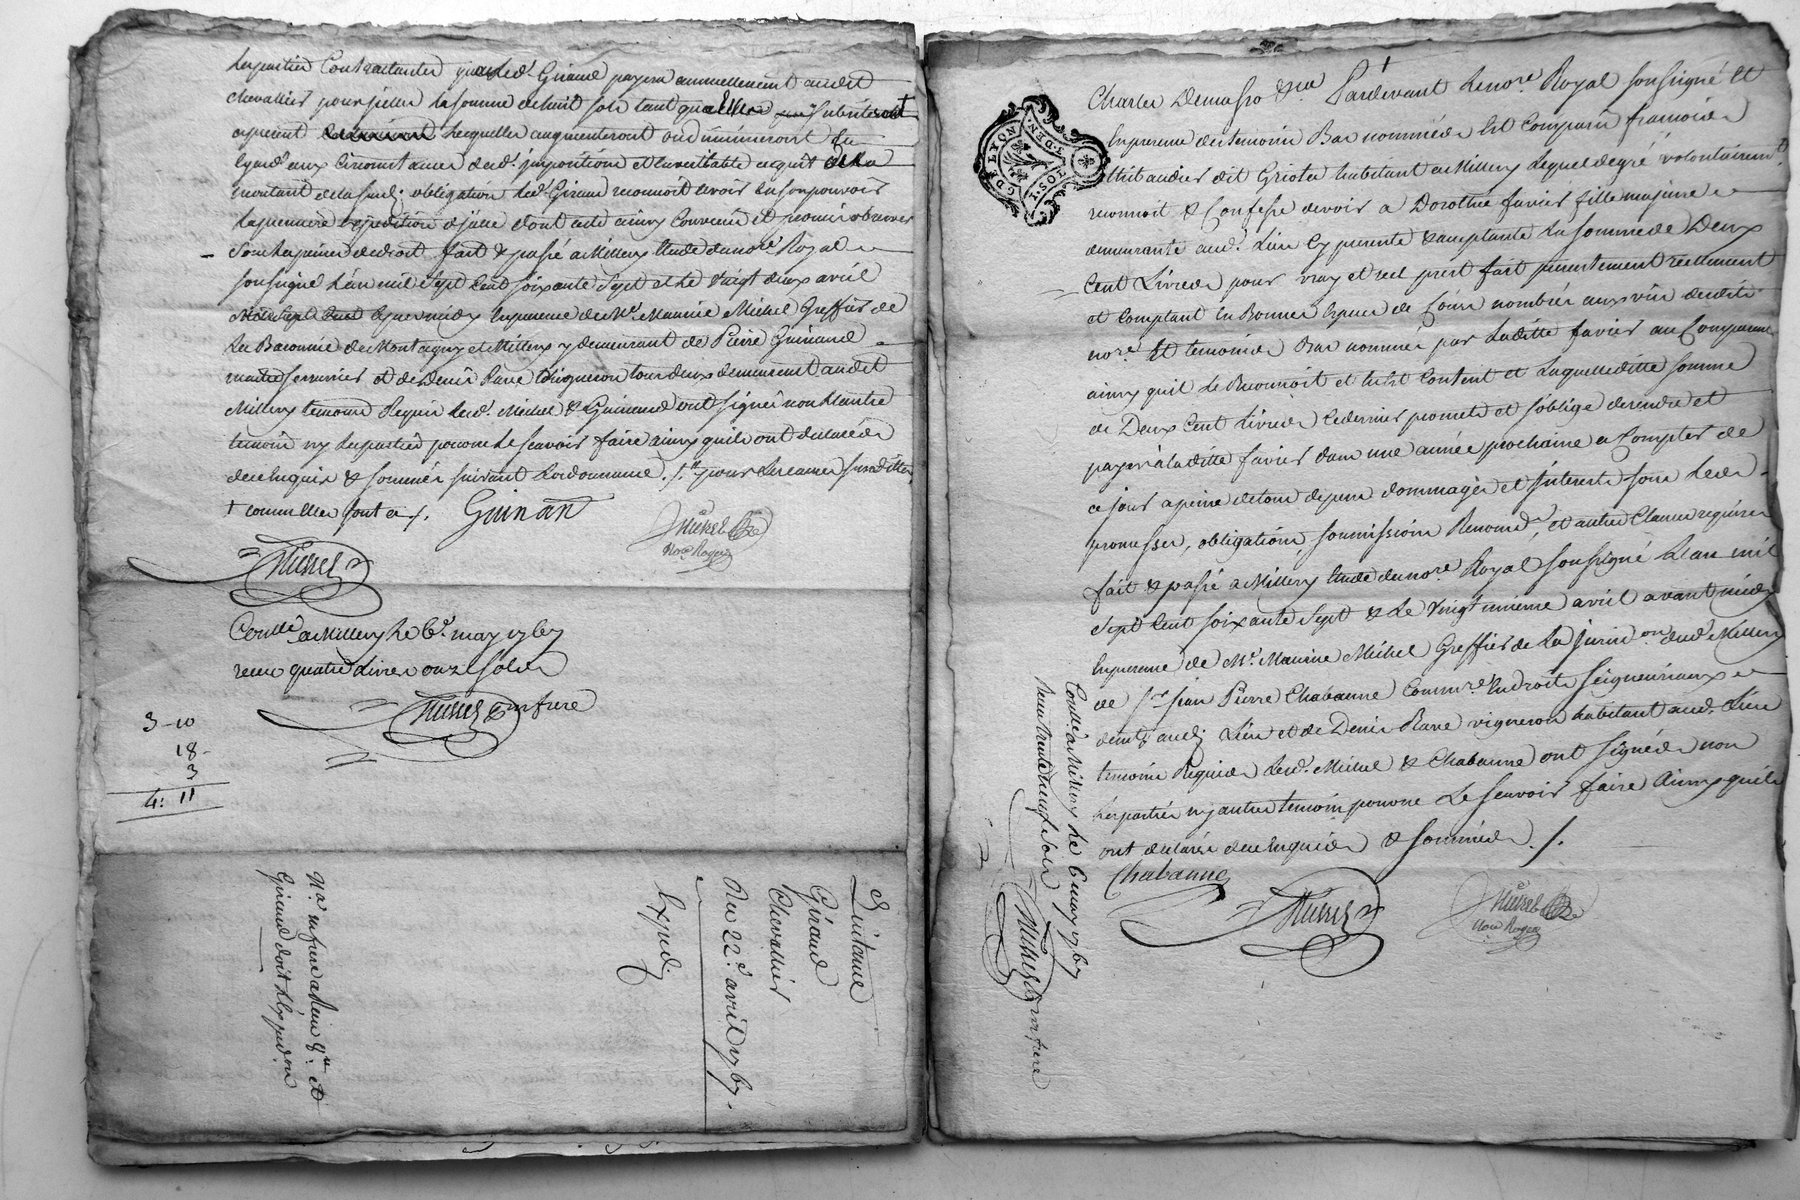 les parties Contractantes que led. Giraud payera annuellement audit
chevallier pour jcelles la somme de huit sols tant quelles subsisteront
apresent lesquelles augmenteront ou diminueront Eu
Egard aux circonstances desd. impositions et Enveritable acquit de la
montant de la susd. obligation led. Giraud reconnoit avoir En son pouvoir
la premiere Expedition d'jcelle dont acte ainsy Convenu et promis observer
sous les peines de droit fait & passé a Millery Etude du nore. Royal
soussigné L'an mil sept cent soixante sept et le vingt deux avril
apres midy En presence de Me. Maurice Michel Greffier de
la Baronnie de Montagny et Millery y demeurant de Pierre Guinand
maitre serrurier et de Denis Rave vigneron tous deux demeurant audit
Millery temoins Requis lesd. Michel & Guinand ont signés non l'autre
temoin ny les parties pour ne le scavoir faire ainsy quils ont declarés
de ce Enquis & sommés suivant l'ordonnance ./. pour les causes susdittes
† comme elles sont a ./. Guinan
Michel
Nore Royal
Michel
Conllé a Millery le 6e. may 1767
receu quatre Livres onze sols
Michel
3 - 10
18 -
3
4 : 11
Quittance
Giraud
Chevallier
Du 22e. avril 1767 -
Expedi.
Na. mr frere a Rein qce. et
Giraud doit l'Expedon
Pardevant Le nore. Royal soussigné Et
En presence des temoins Bas nommés Est Comparu francois
Thibaudier dit Griotier habitant a Millery Lequel de gré volontairemt.
reconnoit & Confesse devoir a Dorothée favier fille majeure
demeurante aud. Lieu Cy presente & acceptante La somme de Deux
Cent Livres pour vray et réel prest fait presentement reellement
et comptant En Bonnes Especes de Cours nombrée aux vüe desdits
nore. Et temoins Bas nommés par Laditte favier au Comparant
ainsy quil Le Reconnoit et En Est Content et Laquelle ditte somme
de Deux Cent Livres Ce dernier promet et s'oblige de rendre et
payer a laditte favier dans une année prochaine a Compter de
ce jour a peine de tous depens dommages et jnterets sous les
promesses, obligations, soumissions Renond. et autres Clauses requises
fait & passé a Millery Etude du nore. Royal soussigné L'an mil
sept cent soixante sept & Le vingt unieme avril avant midy
En presence de Me. Maurice Michel Greffier de La jurisdon. dud. Millery
de sr. jean Pierre Chabanne Commre. En droits seigneuriaux
demt. aud. Lieu et de Denis Rave vigneron habitant aud. Lieu
temoins Requis Lesd. Michel & Chabanne ont signés non
Les parties ny autre temoin pour ne Le scavoir faire Ainsy quils
ont declarés de ce Enquis & sommés ./.
Chabanne
Michel
Michel
Nore Royal
Conllé a Millery Le 6 may 1767
Receu trente neuf sols
Michel
G. DE LYON